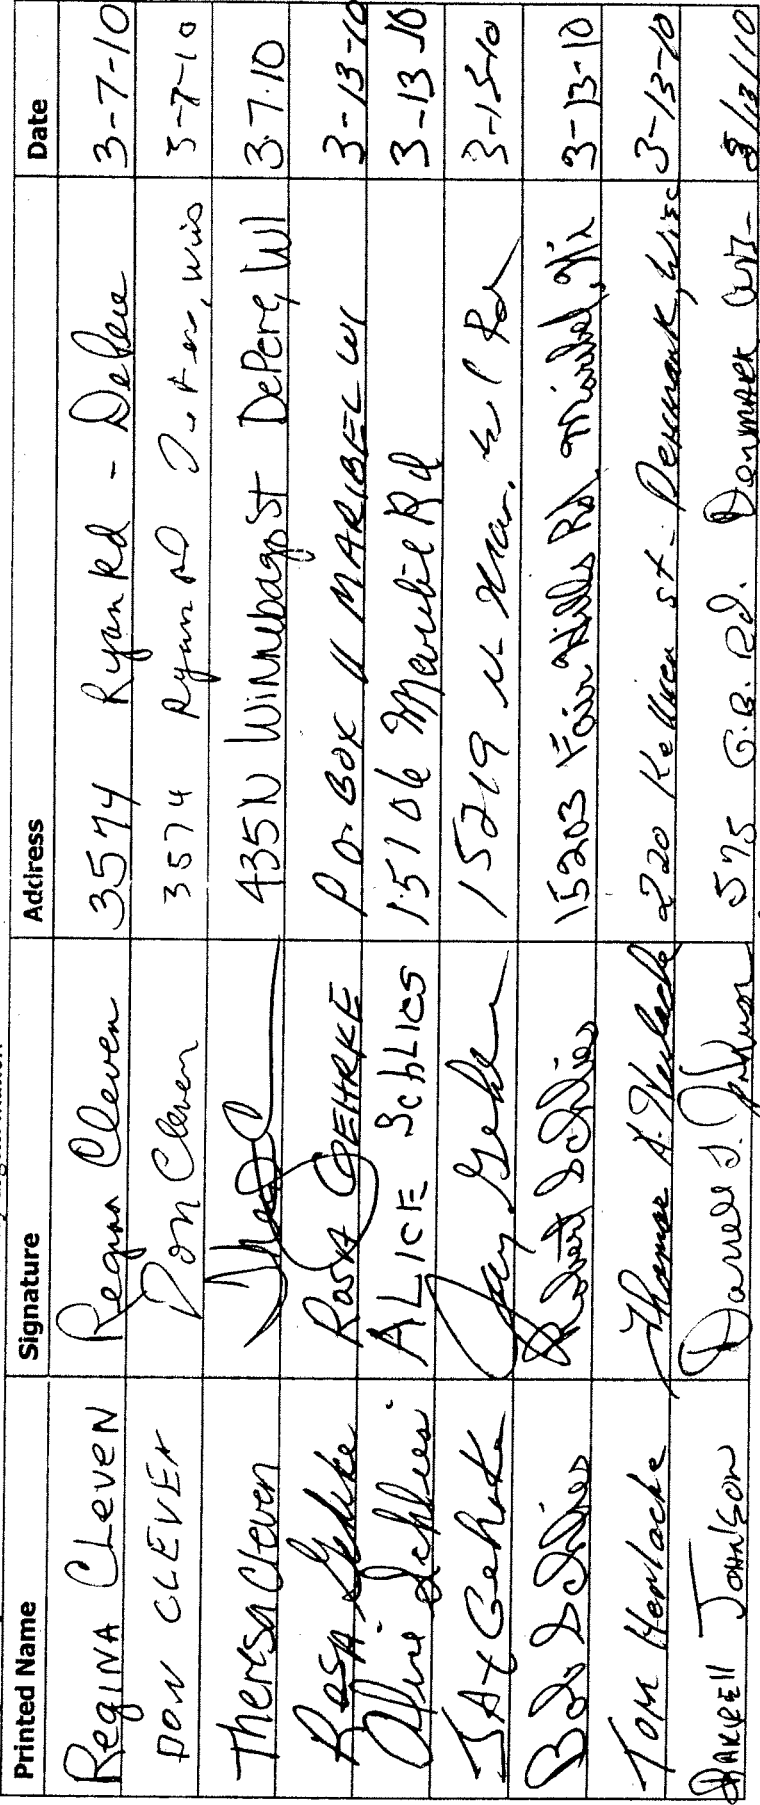 Printed Name Signature Address Date
Regina Cleven Regina Cleven 3574 Ryan Rd - Depere 3-7-10
Don Cleven Don Cleven 3574 Ryan Rd 3-7-10
Theresa Cleven 435 N Winnebago St DePere, WI 3-7-10
Rosa Gehrke Rosa GEHRKE P.O. Box 11 MARIBEL WI 3-13-10
Alice Schlies ALICE SchLies 15106 Maribel Rd 3-13-10
JAY Gehrke Jay Gehrke 15219 3-13-10
Bob Schlies Robert Schlies 15203 Fair Hills Rd, Maribel, Wi 3-13-10
Tom Herlache Thomas A. Herlache 220 St - Denmark, Wisc 3-13-10
DARRELL JOHNSON Darrell J. Johnson 575 G.B. Rd. Denmark 3/13/10